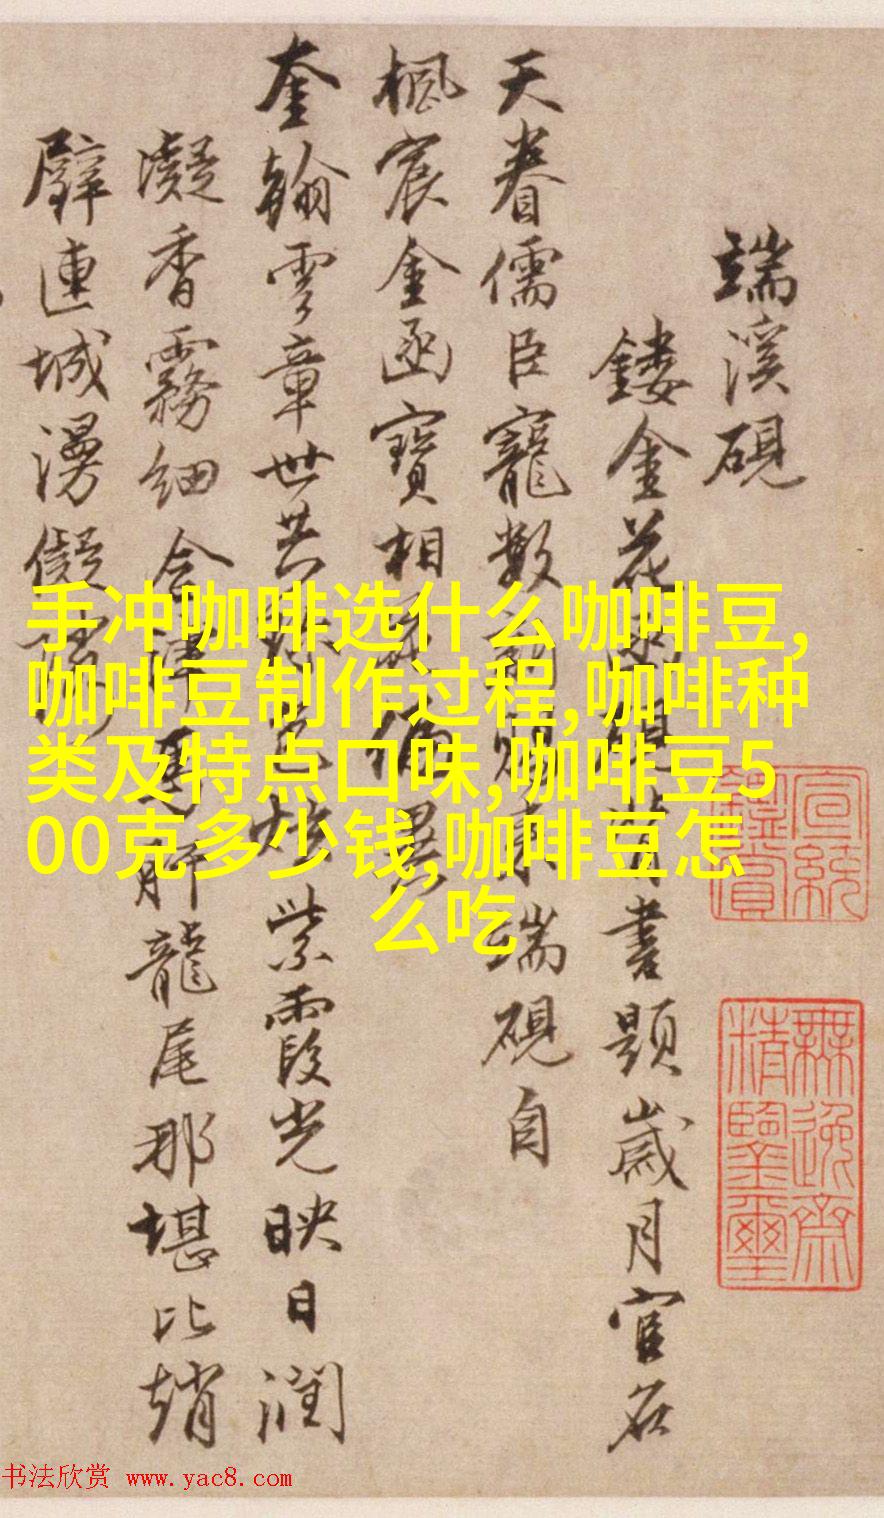 端溪硯
鏤金花書題歲月官名
天眷儒臣寵數端硯自
楓宸金函寶相
奎翰雲章世共紫霞光映日潤
凝香霧細含肝龍尾那堪比趙
璧連城漫儗
手冲咖啡选什么咖啡豆,
咖啡豆制作过程,咖啡种
类及特点口味,咖啡豆5
00克多少钱,咖啡豆怎
么吃
宣統
鑑賞
無逸齋
精鑒璽
书法欣赏 www.yac8.com